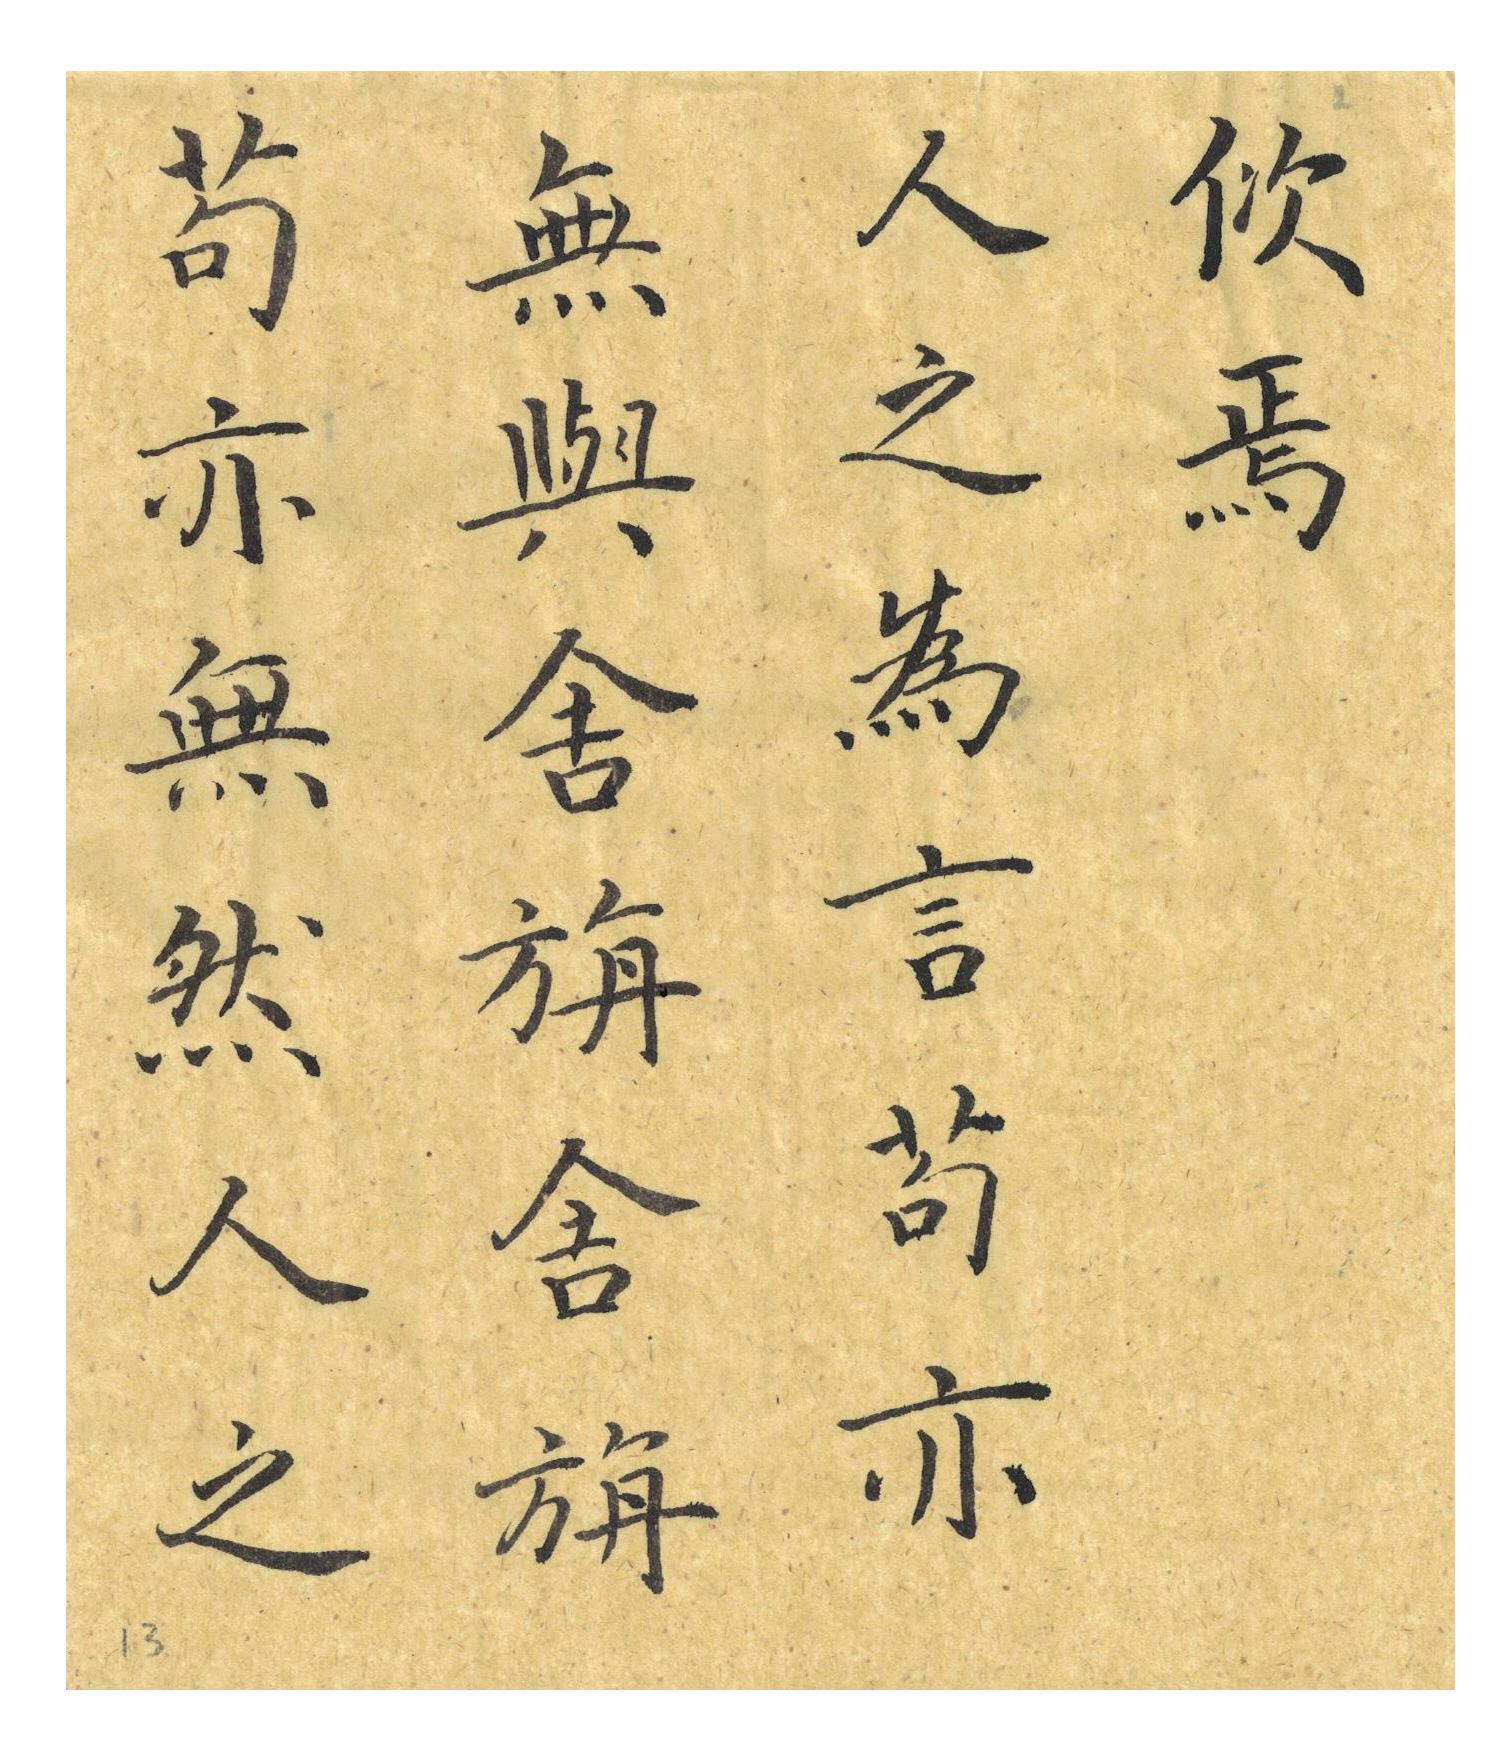 佽焉
人之為言苟亦
無與舍旃舍旃
苟亦無然人之
13